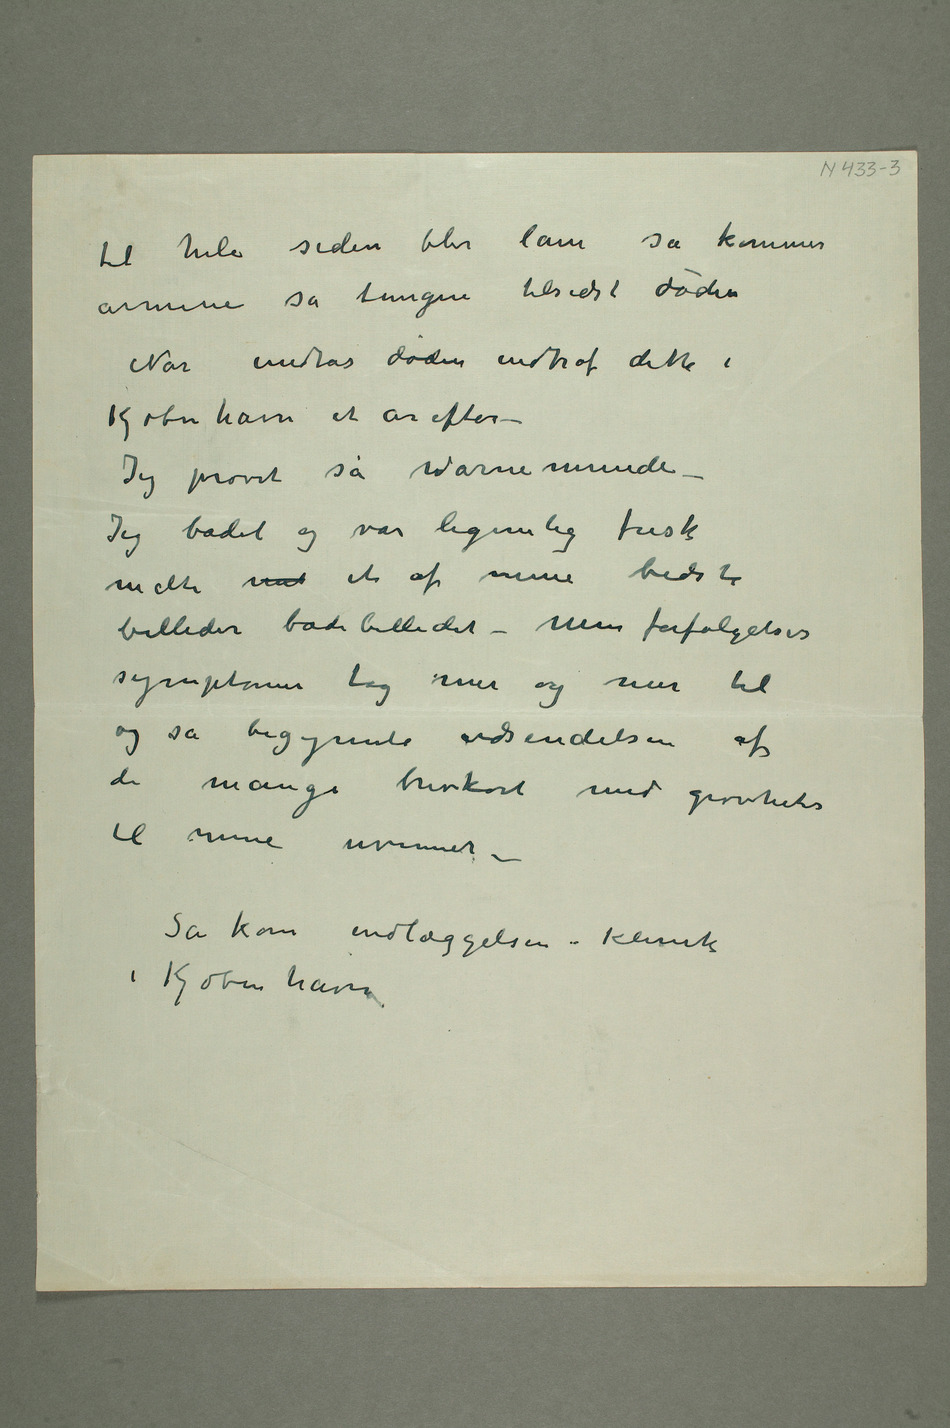 N 433-3
til hele siden blir lam så kommer
armene så tungen tilsidst døden
Når undtas døden indtraf dette i
Kjøbenhavn et år efter –
Jeg prøvet så Warnemunde –
Jeg badet og var legemlig frisk
malte mit et af mine bedste
billeder badebilledet – Men forfølgelses
symptomer tog mer og mer til
og så begynnte udsendelsen af
de mange brevkort med grovheter
til mine uvenner –
Så kom indlæggelsen – Klinik
i Kjøbenhavn